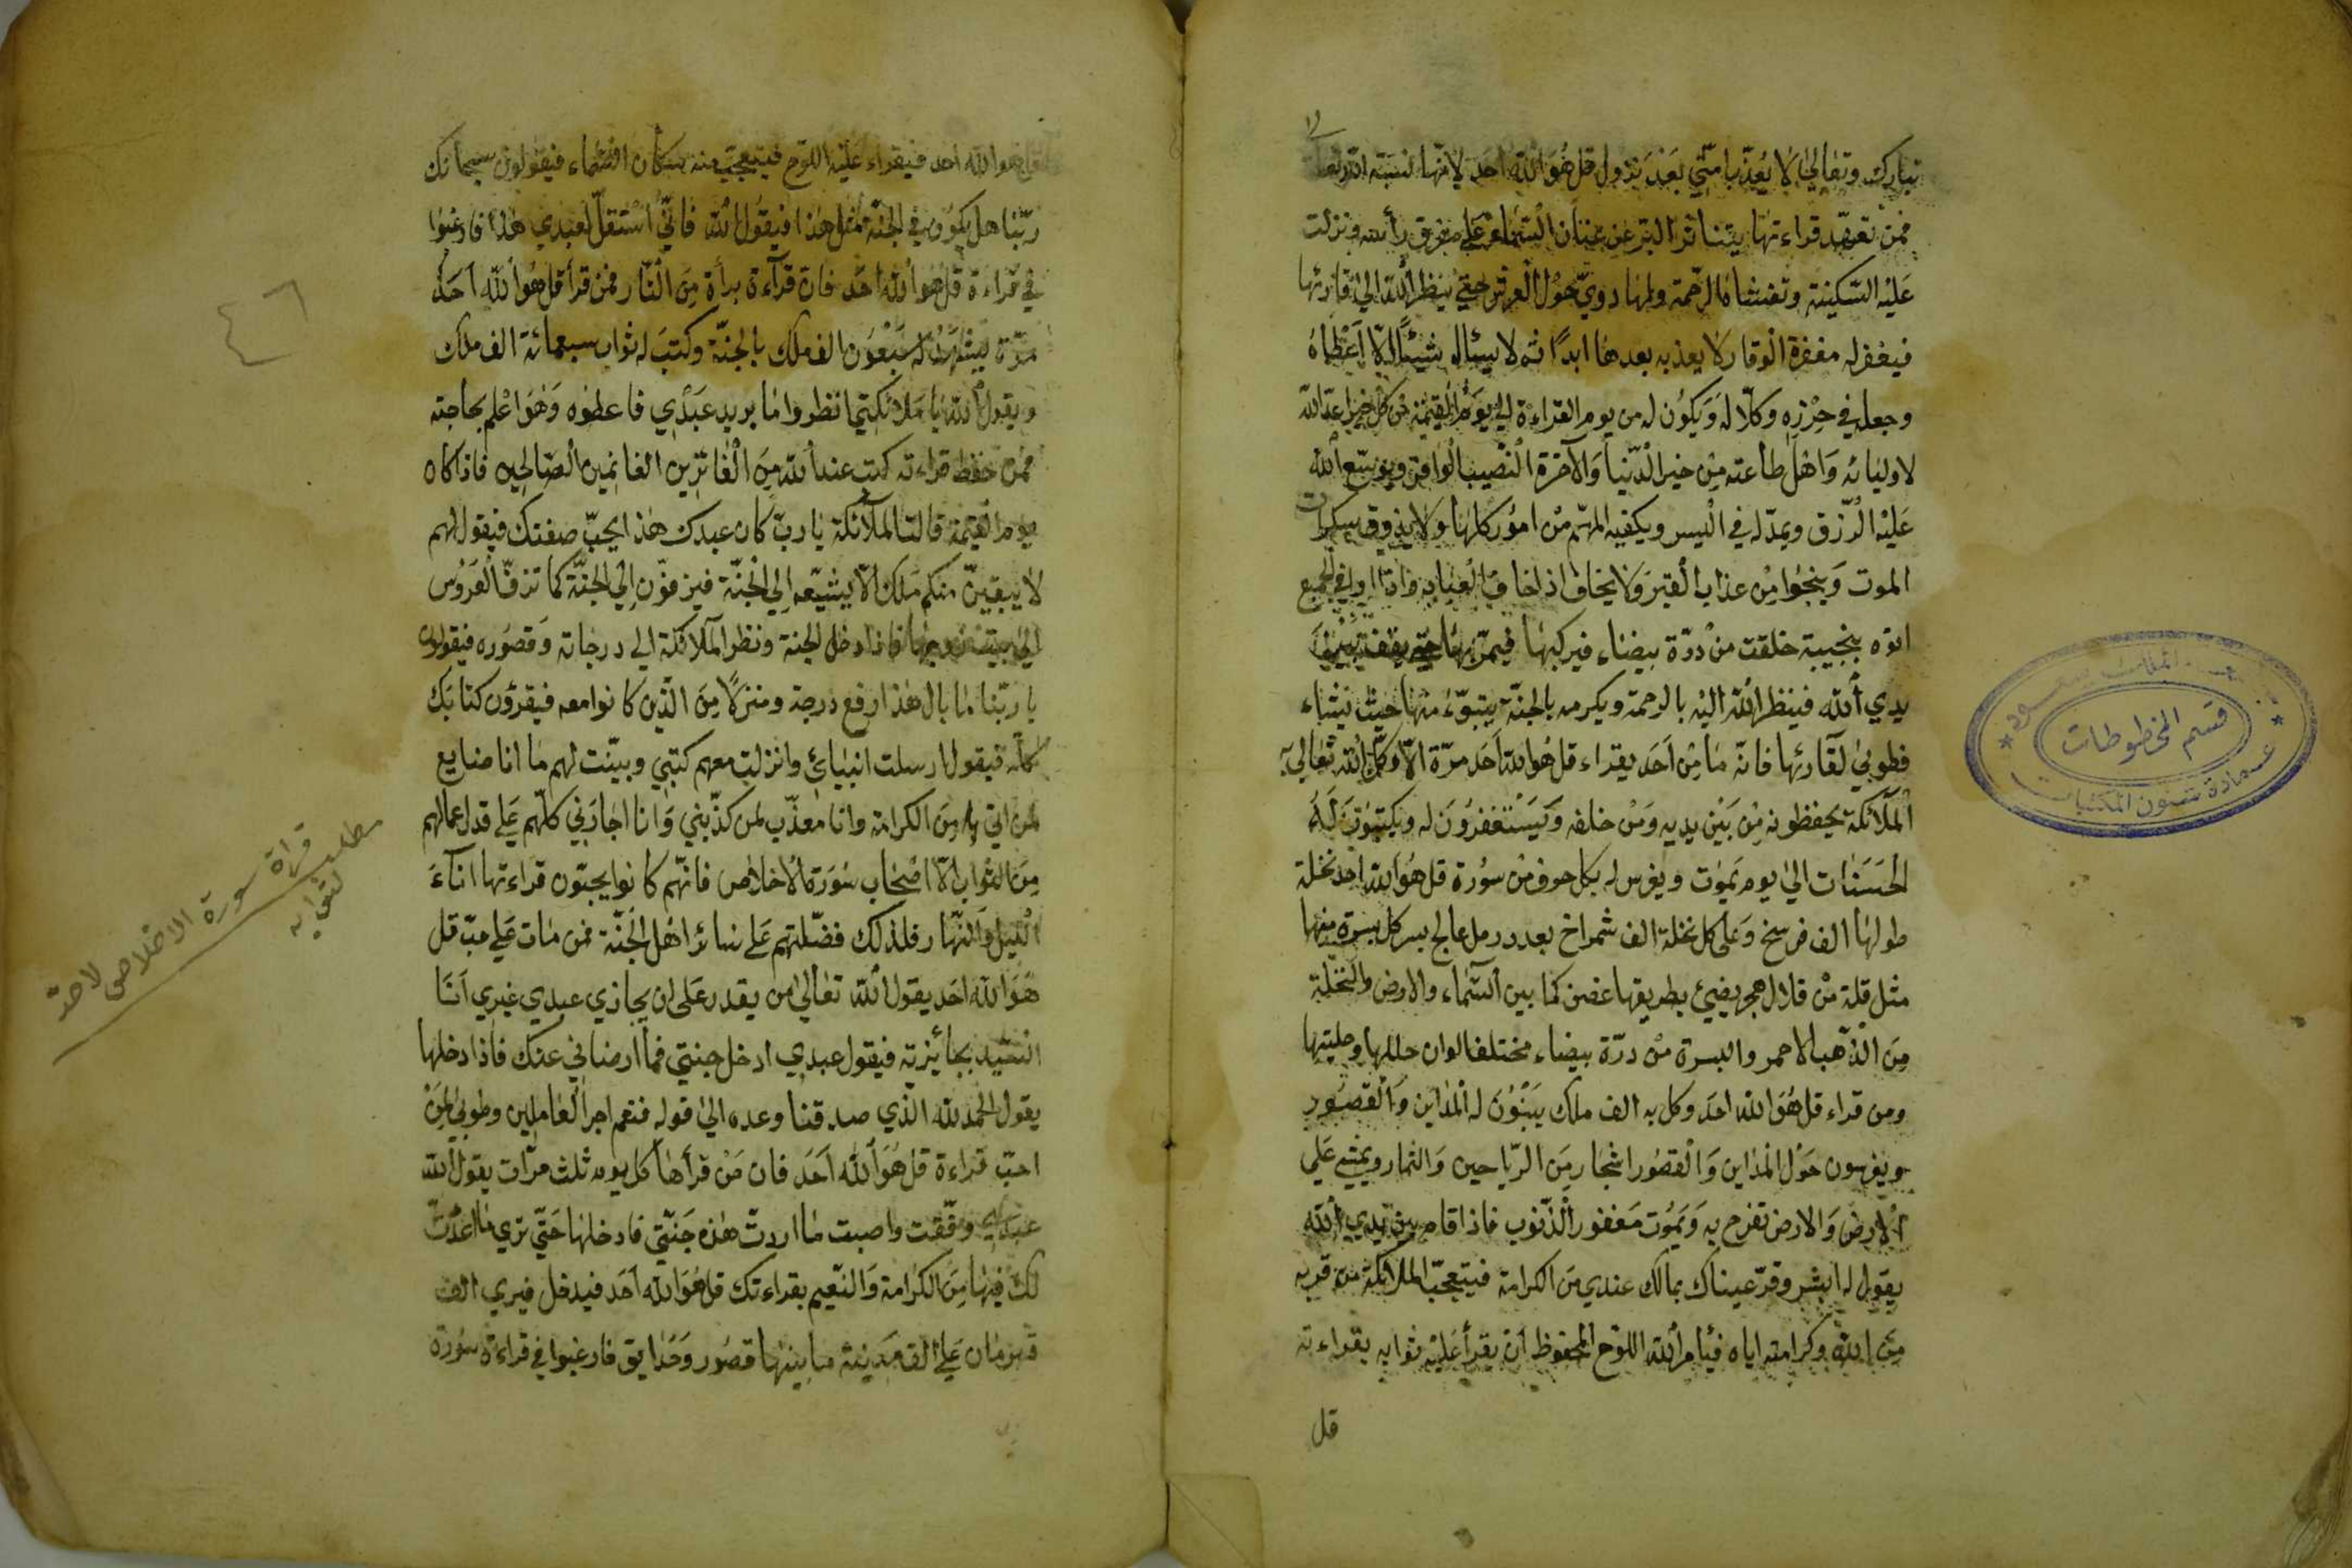 تبارك وتعالى لا يعذب امتي بعد نزول قل هو الله احد لانها نسبة الله تعا
فمن تعهد قراءتها يتناثر البر عن عنان السماء على مفرق رأسه ونزلت
عليه السكينة وتغشاه الرحمة ولها دوي حول العرش حتى ينظر الله الى قارئها
فيغفر له مغفرة الوقار لا يعذبه بعدها ابدًا ثم لا يسئال شيئًا الا اعطاه
وجعله في حرزه وكلا له ويكون له من يوم القراءة الى يوم القيمة من كل خير اعد الله
لاوليائه واهل طاعته من خير الدنيا والآخرة النصيب الوافر ويوسع الله
عليه الرزق ويمد له في اليسر ويكفيه المهم من امور كلها ولا يذوق سكرات
الموت وينجوا من عذاب القبر ولا يخاف اذا خاف العباد فاذا اوافي الجمع
اتوه بنجيبة خلقت من درة بيضاء فيركبها فيمر بها حتى يقف بين
يدي الله فينظر الله اليه بالرحمة ويكرمه بالجنة يتبوء منها حيث يشاء
فطوبى لقارئها فانه ما من احد يقراء قل هو الله احد مرة الا وكل الله تعالى به
الملائكة يحفظونه من بين يديه ومن خلفه ويستغفرون له ويكتبون له
الحسنات الى يوم يموت ويغرس له بكل حرف من سورة قل هو الله احد نخلة
طولها الف فرسخ وعلى كل نخلة الف شمراخ بعدد رمل عالج بسر كل بسرة منها
مثل قلة من قلال هجر يضئ بطريقها غصن كما بين السماء والارض والنخلة
من الذهب الاحمر والبسرة من درة بيضاء مختلف الوان حللها وحليتها
ومن قراء قل هو الله احد وكل به الف ملك يبنون له المداين والقصور
ويغرسون حول المداين والقصور اشجار من الرياحين والثمار ويمشي على
الارض والارض تفرح به ويموت مغفور الذنوب فاذا قام بين يدي الله
يقول له ابشر وقر عيناك بمالك عندي من الكرامة فيتعجب الملائكة من قربه
من الله وكرامته اياه فيأمر الله اللوح المحفوظ ان يقرأ عليه ثوابه بقراءته
قل
قل هو الله احد فيقراء عليه اللوح فيتعجب منه سكان السماء فيقولون سبحانك
ربنا هل يكون في الجنة مثل هذا فيقول الله فاني استقل لعبدي هذا فارغبوا
في قراءة قل هو الله احد فان قرآءة برأة من النار فمن قرأ قل هو الله احد
مرة يبشر له سبعون الف ملك بالجنة وكتب له ثواب سبعمائة الف ملك
ويقول الله يا ملائكتي انظروا ما يريد عبدي فاعطوه وهو اعلم بحاجته
فمن حفظ قراءته كتب عند الله من الفائزين الغانمين الصالحين فاذا كان
يوم القيمة قالت الملآئكة يا رب كان عبدك هذا يحب صفتك فيقول لهم
لا يبقين منكم ملك الا يشيعه الى الجنة فيزفون الى الجنة كما تزف العروس
الى بيت زوجها فاذا دخل الجنة ونظر الملائكة الى درجاته وقصوره فيقولون
يا ربنا ما بال هذا ارفع درجة ومنزلًا من الذين كانوا معه فيقرؤن كتابك
كله فيقول ارسلت انبيائي وانزلت معهم كتبي وبينت لهم ما انا صانع
لمن اتى به من الكرامة وانا معذب لمن كذبني وانا اجازني كلهم على قدر اعمالهم
من الثواب الا اصحاب سورة الاخلاص فانهم كانوا يحبون قراءتها اناء
الليل والنهار فلذلك فضلتهم على سائر اهل الجنة فمن مات على حب قل
هو الله احد يقول الله تعالى من يقدر على ان يجازي عبدي غيري انا
السيد بجائزته فيقول عبدي ادخل جنتي فما ارضاني عنك فاذا دخلها
يقول الحمد لله الذي صدقنا وعده الى قوله فنعم اجر العاملين وطوبى لمن
احب قراءة قل هو الله احد فان من قرأها كل يوم ثلث مرات يقول الله
عبدي وفقت واصبت ما اردت هذه جنتي فادخلها حتى ترى ما اعددت
لك فيها من الكرامة والنعيم بقراءتك قل هو الله احد فيدخل فيرى الف
قهرمان على الف مدينة ما بينها قصور وحدايق فارغبوا في قراءة سورة
٤٦
مطلب
قراءة سورة الاخلاص
لثوابه
قسم المخطوطات
عمادة شئون المكتبات